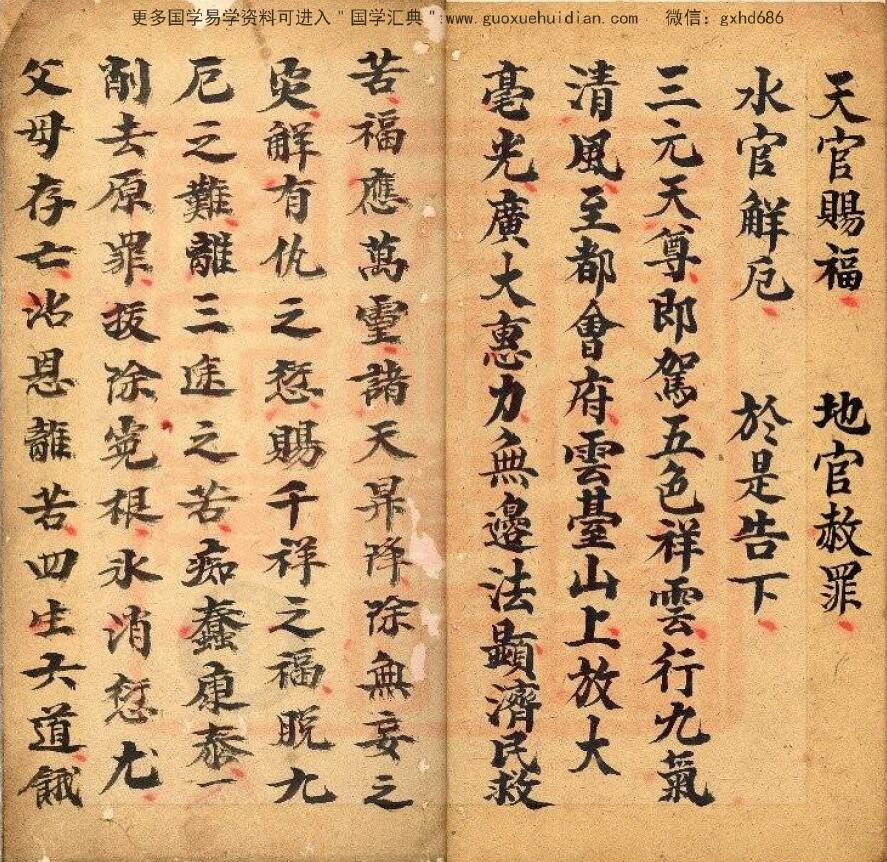 更多国学易学资料可进入＂国学汇典＂:www.guoxuehuidian.com 微信：gxhd686
天官賜福 地官赦罪
水官解厄 於是告下
三元天尊即駕五色祥雲行九氣
清風至都會府雲臺山上放大
毫光廣大惠力無邊法顯濟民救
苦福應萬靈諸天昇降除無妄之
災解有仇之愆賜千祥之福脫九
厄之難離三途之苦痴蠢康泰一
削去原罪拔除冤根氷消愆尤
父母存亡沾恩離苦四生六道餓